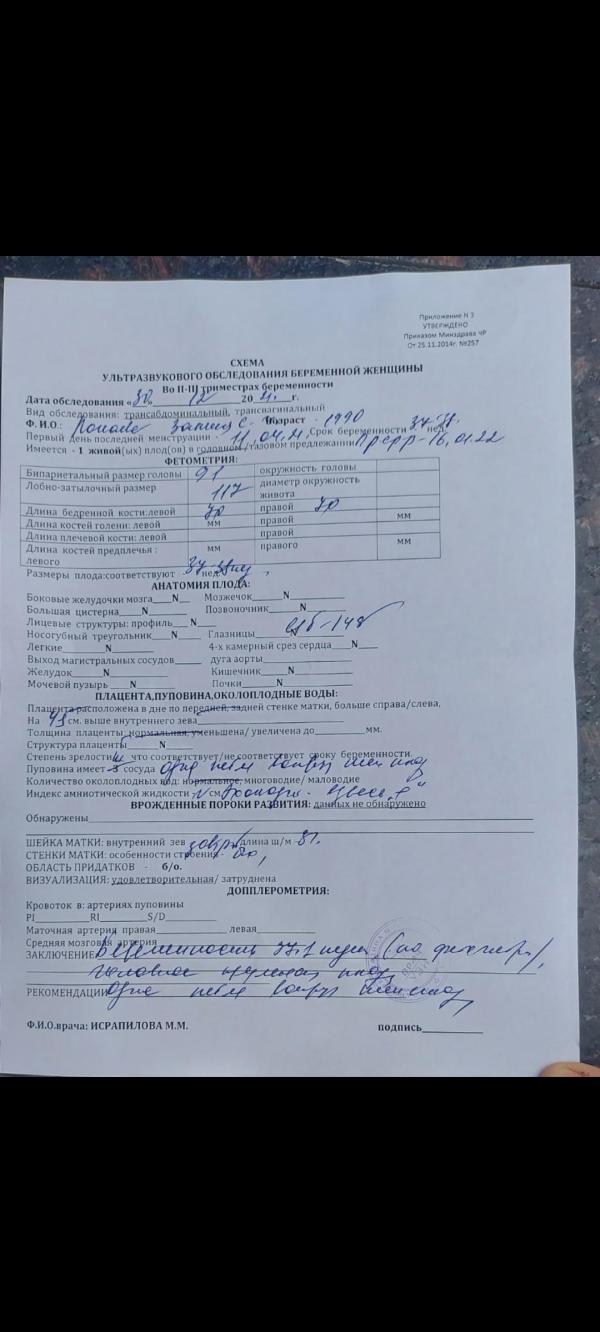 Приложение N 3
УТВЕРЖДЕНО
Приказом Минздрава ЧР
От 25.11.2014г. №257
СХЕМА
УЛЬТРАЗВУКОВОГО ОБСЛЕДОВАНИЯ БЕРЕМЕННОЙ ЖЕНЩИНЫ
Во II-III триместрах беременности
Дата обследования «30» 12 2021 г.
Вид обследования: трансабдоминальный, трансвагинальный
Ф. И.О.: Возраст - 1990
Первый день последней менструации - 11.04.21, Срок беременности - 37-38 нед.
Имеется - 1 живой(ых) плод(ов) в головном /тазовом предлежании 16.01.22
ФЕТОМЕТРИЯ:
Бипариетальный размер головы 91 окружность головы
Лобно-затылочный размер 117 диаметр окружность живота
Длина бедренной кости:левой 70 правой 70
Длина костей голени: левой мм правой мм
Длина плечевой кости: левой правой
Длина костей предплечья : левого мм правого мм
Размеры плода:соответствуют 37-38 нед.
АНАТОМИЯ ПЛОДА:
Боковые желудочки мозга N Мозжечок N
Большая цистерна N Позвоночник N
Лицевые структуры: профиль N
Носогубный треугольник N Глазницы N с/б-148
Легкие N 4-х камерный срез сердца N
Выход магистральных сосудов дуга аорты
Желудок N Кишечник N
Мочевой пузырь N Почки N
ПЛАЦЕНТА,ПУПОВИНА,ОКОЛОПЛОДНЫЕ ВОДЫ:
Плацента расположена в дне по передней, задней стенке матки, больше справа/слева,
На см. выше внутреннего зева
Толщина плаценты: нормальная, уменьшена/ увеличена до мм.
Структура плаценты N
Степень зрелости что соответствует/не соответствует сроку беременности.
Пуповина имеет 3 сосуда одна петля вокруг шеи плода
Количество околоплодных вод: нормальное, многоводие/ маловодие
Индекс амниотической жидкости N см
ВРОЖДЕННЫЕ ПОРОКИ РАЗВИТИЯ: данных не обнаружено
Обнаружены
ШЕЙКА МАТКИ: внутренний зев закрыт длина ш/м -
СТЕНКИ МАТКИ: особенности строения - б/о,
ОБЛАСТЬ ПРИДАТКОВ - б/о.
ВИЗУАЛИЗАЦИЯ: удовлетворительная/ затруднена
ДОППЛЕРОМЕТРИЯ:
Кровоток в: артериях пуповины
PI RI S/D
Маточная артерия правая левая
Средняя мозговая артерия
ЗАКЛЮЧЕНИЕ: Беременность 37.1 нед (по фетометр.),
головное предлеж плода,
РЕКОМЕНДАЦИИ одна петля вокруг шеи плода,
Ф.И.О.врача: ИСРАПИЛОВА М.М. подпись